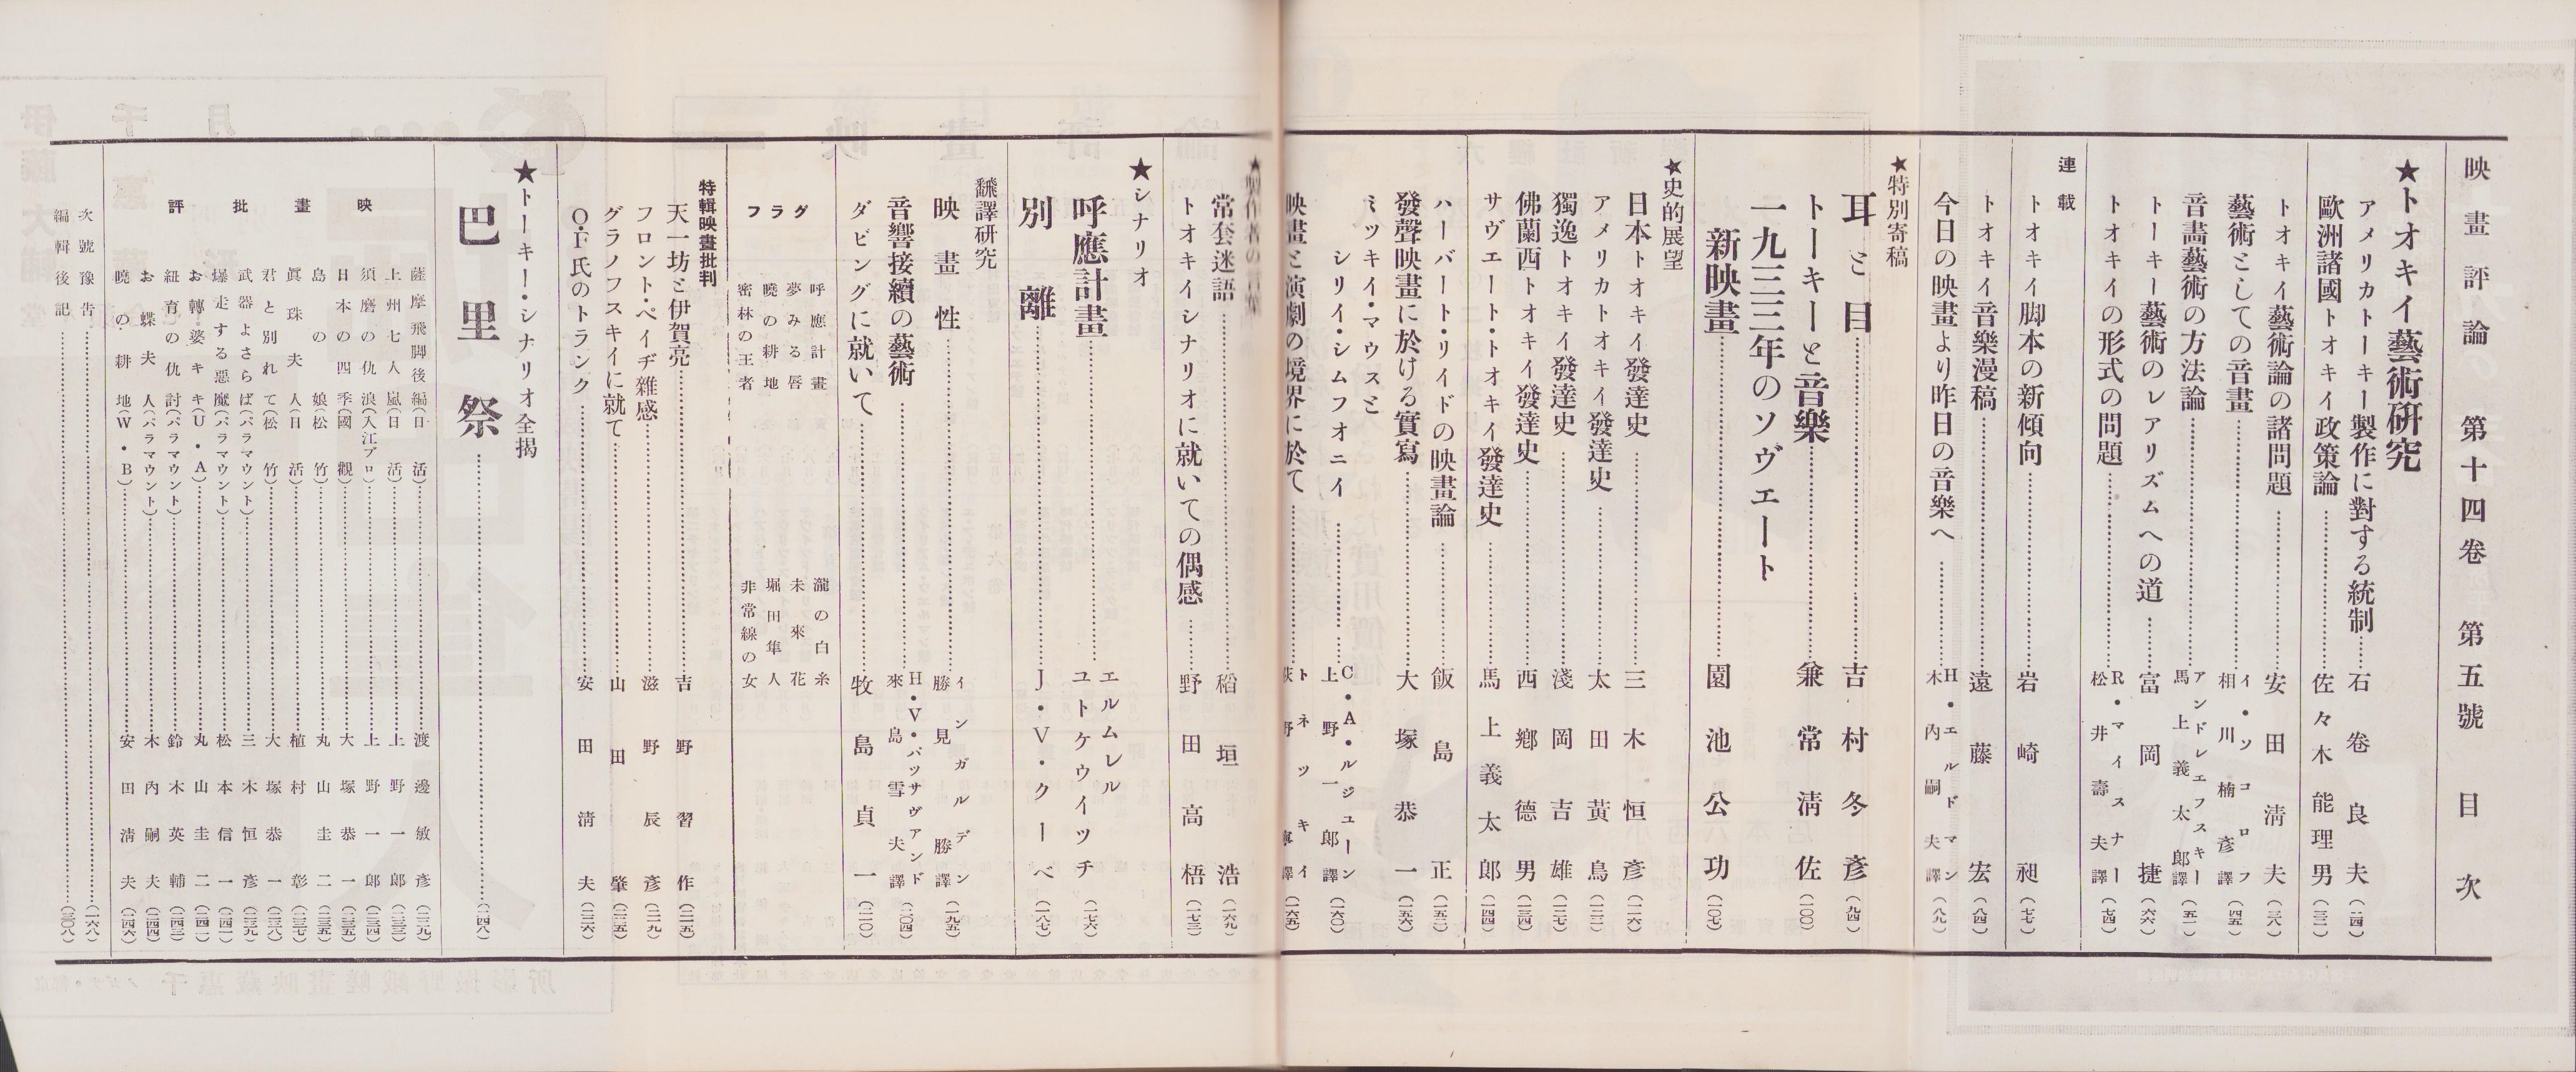 映畫評論 第十四卷 第五號 目次
★トオキイ藝術研究
アメリカトーキー製作に對する統制 石卷良夫 (二四)
歐洲諸國トオキイ政策論 佐々木能理男 (三二)
トオキイ藝術論の諸問題 安田淸夫 (三八)
藝術としての音畫 イ・ソコロフ 相川楠彥譯 (四五)
音畵藝術の方法論 アンドレエフスキー 馬上義太郎譯 (五一)
トーキー藝術のレアリズムへの道 富岡捷 (六六)
トオキイの形式の問題 R・マイスナー 松井壽夫譯 (七四)
連載
トオキイ脚本の新傾向 岩崎昶 (七七)
トオキイ音樂漫稿 遠藤宏 (八四)
今日の映畫より昨日の音樂へ H・エルドマン 木內嗣夫譯 (八九)
★特別寄稿
耳と目 吉村冬彥 (九四)
トーキーと音樂 兼常淸佐 (一〇〇)
一九三三年のソヴエート
新映畫 園池公功 (一〇七)
★史的展望
日本トオキイ發達史 三木恒彥 (一一六)
アメリカトオキイ發達史 太田黃鳥 (一二二)
獨逸トオキイ發達史 淺岡吉雄 (一二七)
佛蘭西トオキイ發達史 西鄕德男 (一三四)
サヴエート・トオキイ發達史 馬上義太郎 (一四四)
ハーバート・リイドの映畫論 飯島正 (一五二)
發聲映畫に於ける實寫 大塚恭一 (一五六)
ミツキイ・マウスと
シリイ・シムフオニイ C・A・ルジユーン 上野一郎譯 (一六〇)
映畫と演劇の境界に於て トネツキイ (一六五)
常套迷語 稻垣浩 (一六九)
トオキイシナリオに就いての偶感 野田高梧 (一七三)
★シナリオ
呼應計畫 エルムレル ユトケウイツチ (一七六)
別離 J・V・クーベ (一八七)
飜譯研究
映畫性 インガルデン 勝見勝譯 (一九五)
音響接續の藝術 H・V・バツサヴアンド 來島雪夫譯 (二〇四)
ダビングに就いて 牧島貞一 (二一〇)
グラフ
呼應計畫 瀧の白糸
夢みる唇 未來花
曉の耕地 堀田隼人
密林の王者 非常線の女
特輯映畫批判
天一坊と伊賀亮 吉野習作 (二一五)
フロント・ペイヂ雜感 滋野辰彥 (二一九)
グラノフスキイに就て 山田肇 (二二五)
O・F氏のトランク 安田淸夫 (二二六)
★トーキー・シナリオ全揭
巴里祭 (二四八)
映畫批評
薩摩飛脚後編(日活) 渡邊敏彥 (二二九)
上州七人嵐(日活) 上野一郎 (二三三)
須磨の仇浪(入江プロ) 上野一郎 (二三四)
日本の四季(國觀) 大塚恭一 (二三五)
島の娘(松竹) 丸山圭二 (二三五)
眞珠夫人(日活) 植村彰 (二三七)
君と別れて(松竹) 大塚恭一 (二三八)
武器よさらば(パラマウント) 三木恒彥 (二三九)
爆走する惡魔(パラマウント) 松本信一 (二四一)
お轉婆キキ(U・A) 丸山圭二 (二四二)
紐育の仇討(パラマウント) 鈴木英輔 (二四三)
お蝶夫人(パラマウント) 木內嗣夫 (二四四)
曉の耕地(W・B) 安田淸夫 (二四六)
次號豫吿 (一六八)
編輯後記 (三〇八)